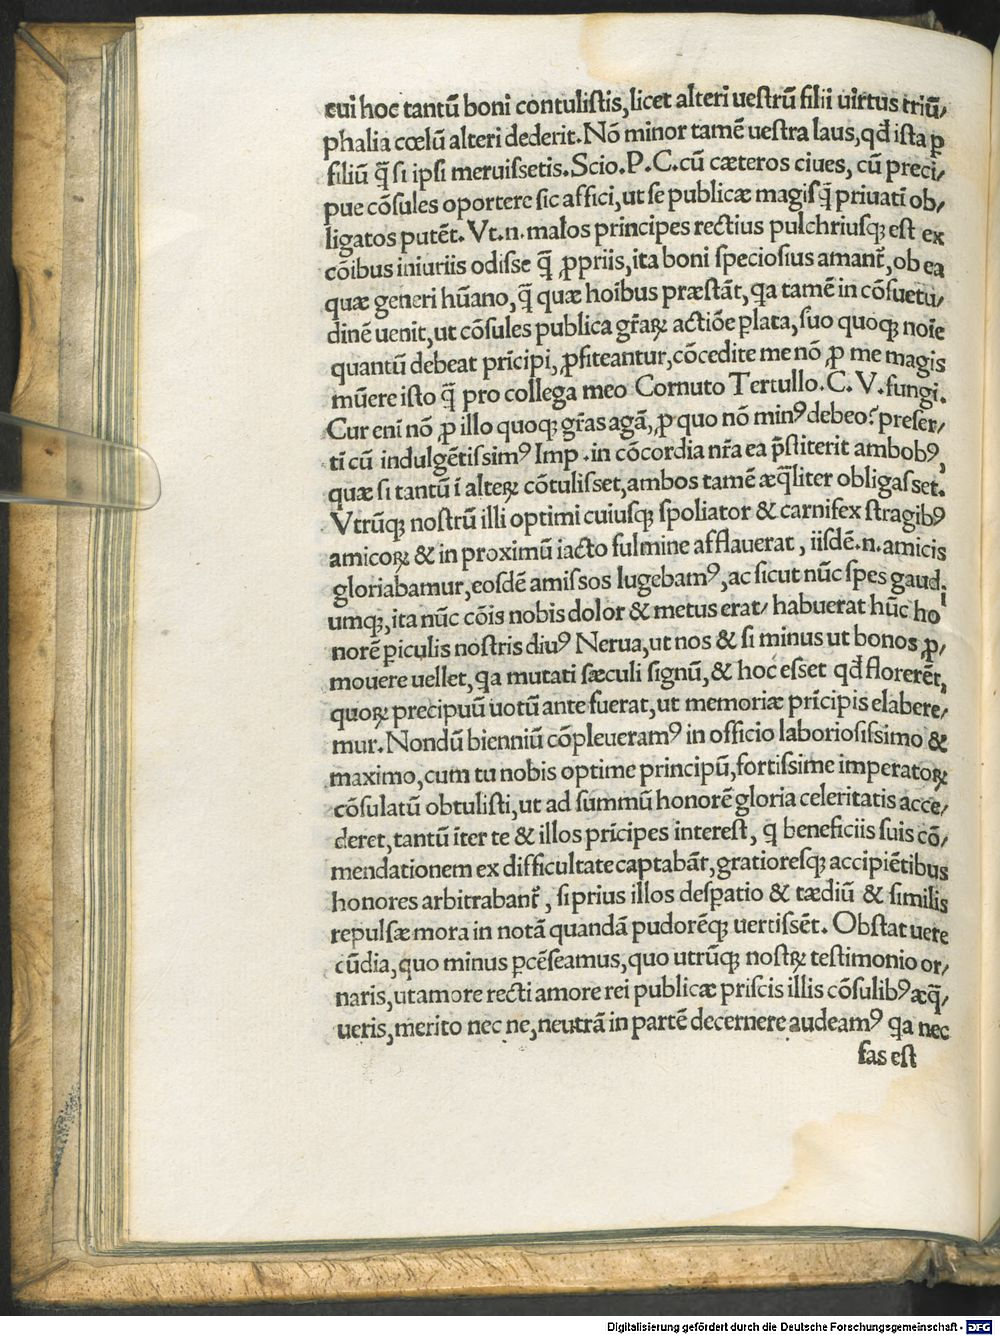 cui hoc tantũ boni contuliſtis, licet alteri ueſtrũ filii uirtus triũ⸗
phalia cœlũ alteri dederit. Nõ minor tamẽ ueſtra laus, qđ iſta ꝑ
filiũ q̃ ſi ipſi meruiſsetis. Scio. P. C. cũ cæteros ciues, cũ preci⸗
pue cõſules oportere ſic affici, ut ſe publicæ magiſ q̃ priuati ob⸗
ligatos putẽt. Vt. n. malos principes rectius pulchriuſq; eſt ex
cõibus iniuriis odiſse q̃ ꝓpriis, ita boni ſpecioſius amant̃, ob ea
quæ generi hũano, q̃ quæ hoĩbus præſtãt, qa tamẽ in cõſuetu⸗
dinẽ uenit, ut cõſules publica gr̃aꝝ actiõe plata, ſuo quoq; noĩe
quantũ debeat prĩcipi, ꝓfiteantur, cõcedite me nõ ꝓ me magis
mũere iſto q̃ pro collega meo Cornuto Tertullo. C. V. fungi.
Cur enĩ nõ ꝓ illo quoq; gr̃as agã, ꝓ quo nõ minꝰ debeo? preſer⸗
tĩ cũ indulgẽtiſsimꝰ Imp. in cõcordia nr̃a ea p̃ſtiterit ambobꝰ,
quæ ſi tantũ ĩ alteꝝ cõtuliſset, ambos tamẽ æq̃liter obligaſset.
Vtrũq; noſtrũ illi optimi cuiuſq; ſpoliator & carnifex ſtragibꝰ
amicoꝝ & in proximũ iacto fulmine afflauerat, iiſdẽ. n. amicis
gloriabamur, eoſdẽ amiſsos lugebamꝰ, ac ſicut nũc ſpes gaudi
umq;, ita nũc cõis nobis dolor & metus erat⸗ habuerat hũc ho
norẽ piculis noſtris diuꝰ Nerua, ut nos & ſi minus ut bonos ꝓ⸗
mouere uellet, qa mutati ſæculi ſignũ, & hoc eſset qđ florerẽt,
quoꝝ precipuũ uotũ ante fuerat, ut memoriæ prĩcipis elabere⸗
mur. Nondũ bienniũ cõpleueramꝰ in officio laborioſiſsimo &
maximo, cum tu nobis optime principũ, fortiſsime imperatoꝝ
cõſulatũ obtuliſti, ut ad ſummũ honorẽ gloria celeritatis acce⸗
deret, tantũ ĩter te & illos prĩcipes intereſt, q beneficiis ſuis cõ⸗
mendationem ex difficultate captabãt, gratioreſq; accipiẽtibus
honores arbitrabant̃, ſi prius illos deſpatio & tædiũ & ſimilis
repulſæ mora in notã quandã pudorẽq; uertiſsẽt. Obſtat uere
cũdia, quo minus pcẽſeamus, quo utrũq; noſtꝝ teſtimonio or⸗
naris, ut amore recti amore rei publicæ priſcis illis cõſulibꝰ æq̃⸗
ueris, merito nec ne, neutrã in partẽ decernere audeamꝰ qa nec
fas eſt
Digitalisierung gefördert durch die Deutsche Forschungsgemeinschaft - DFG